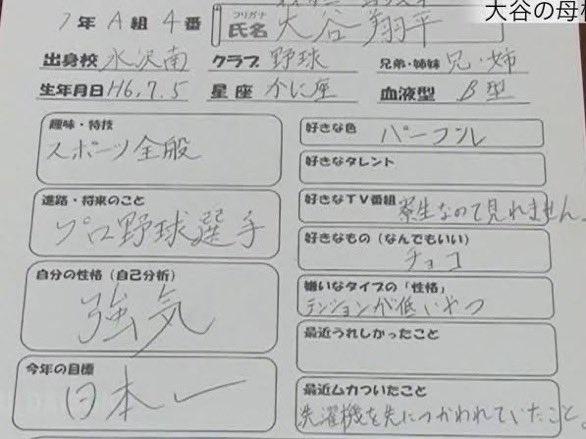 大谷の母校
1年 A組 4番
フリガナ
氏名 大谷翔平
出身校 水沢南 クラブ 野球 兄弟・姉妹 兄・姉
生年月日 H6.7.5 星座 かに座 血液型 B型
趣味・特技
スポーツ全般
進路・将来のこと
プロ野球選手
自分の性格(自己分析)
強気
今年の目標
日本一
好きな色 パープル
好きなタレント
好きなTV番組
寮生なので見れません。
好きなもの(なんでもいい)
チョコ
嫌いなタイプの「性格」
テンションが低いやつ
最近うれしかったこと
最近ムカついたこと
洗濯機を先につかわれていたこと。